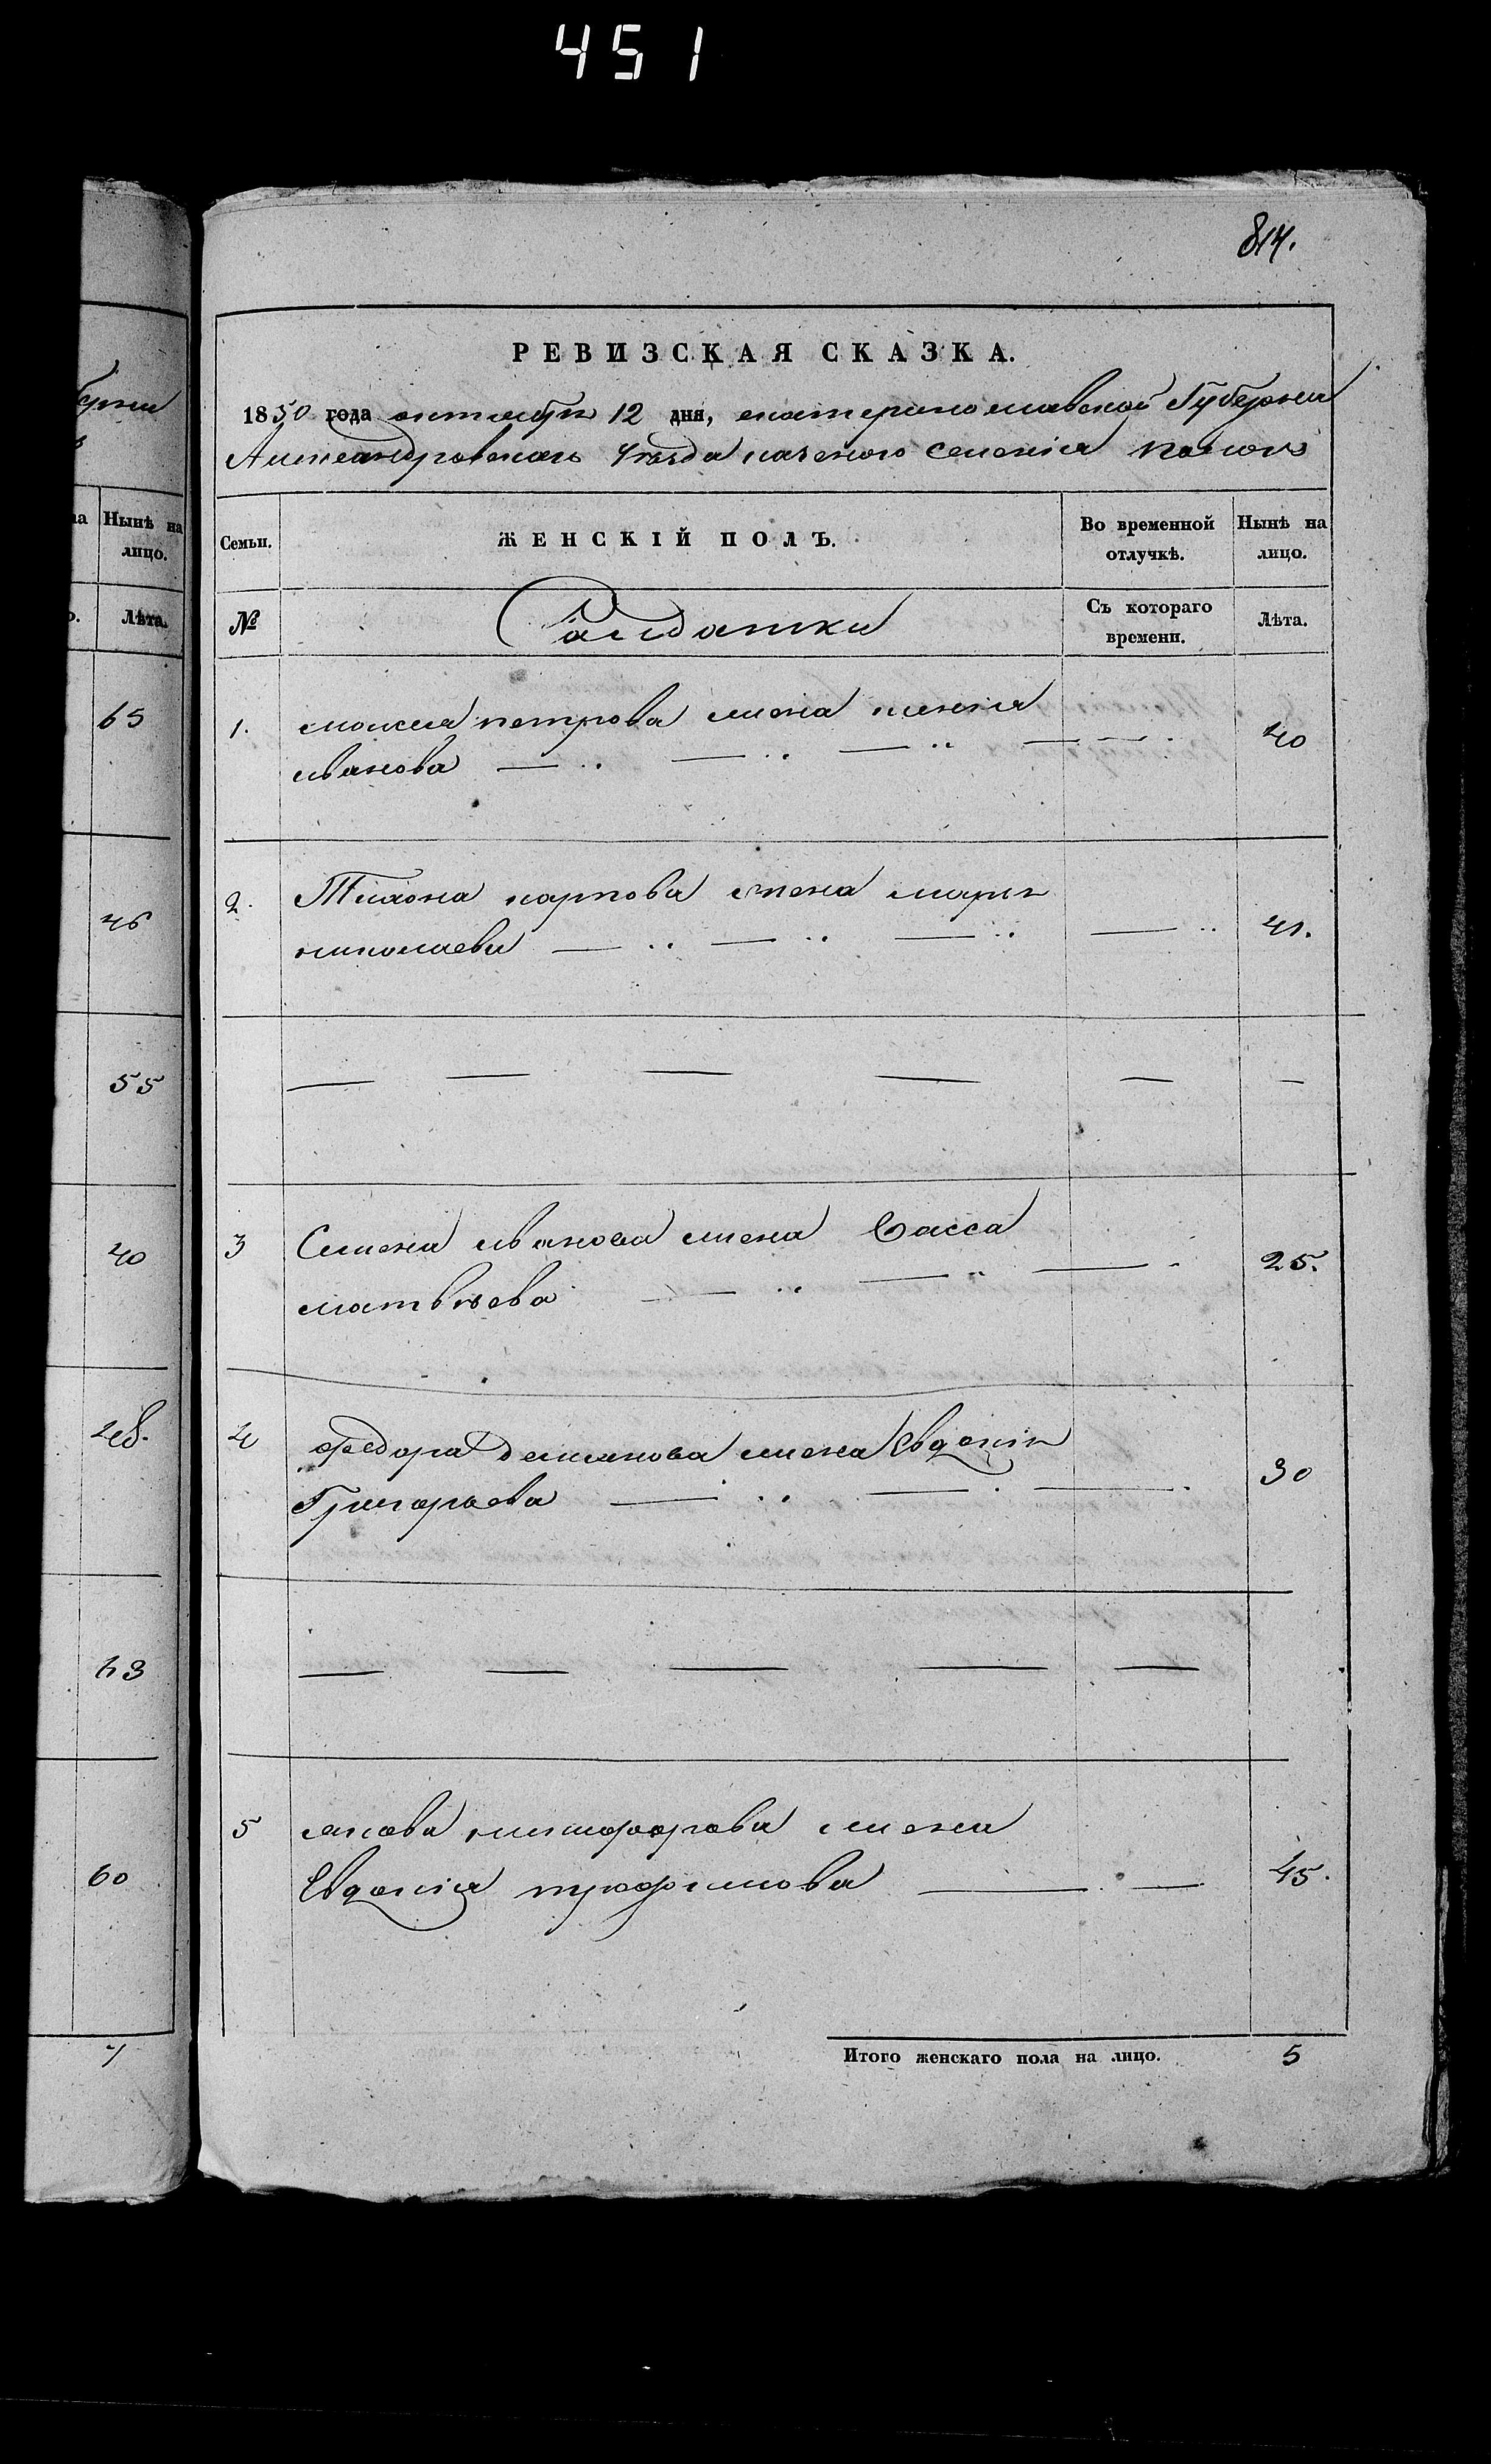 451
814.
РЕВИЗСКАЯ СКАЗКА.
1850 года октября 12 дня, екатеринославской Губернии
Александровскаго уѣзда казеного селенія
Семьи.
ЖЕНСКІЙ ПОЛЪ.
Во временной отлучкѣ.
Нынѣ на лицо.
№
Салдатки
Съ котораго времени.
Лѣта.
1. моисея петрова жена ксенія 40
иванова
2. Тихона карпова жена марья 41.
николаева
3 Семена иванова жена Васса 25.
матвѣева
4 федора демянова жена Евдокія 30
Григорьева
5 якова никифорова жена 45.
Евдокія трофимова
Итого женскаго пола на лицо. 5
Нынѣ на лицо.
Лѣта.
65
46
55
40
48.
43
60
7